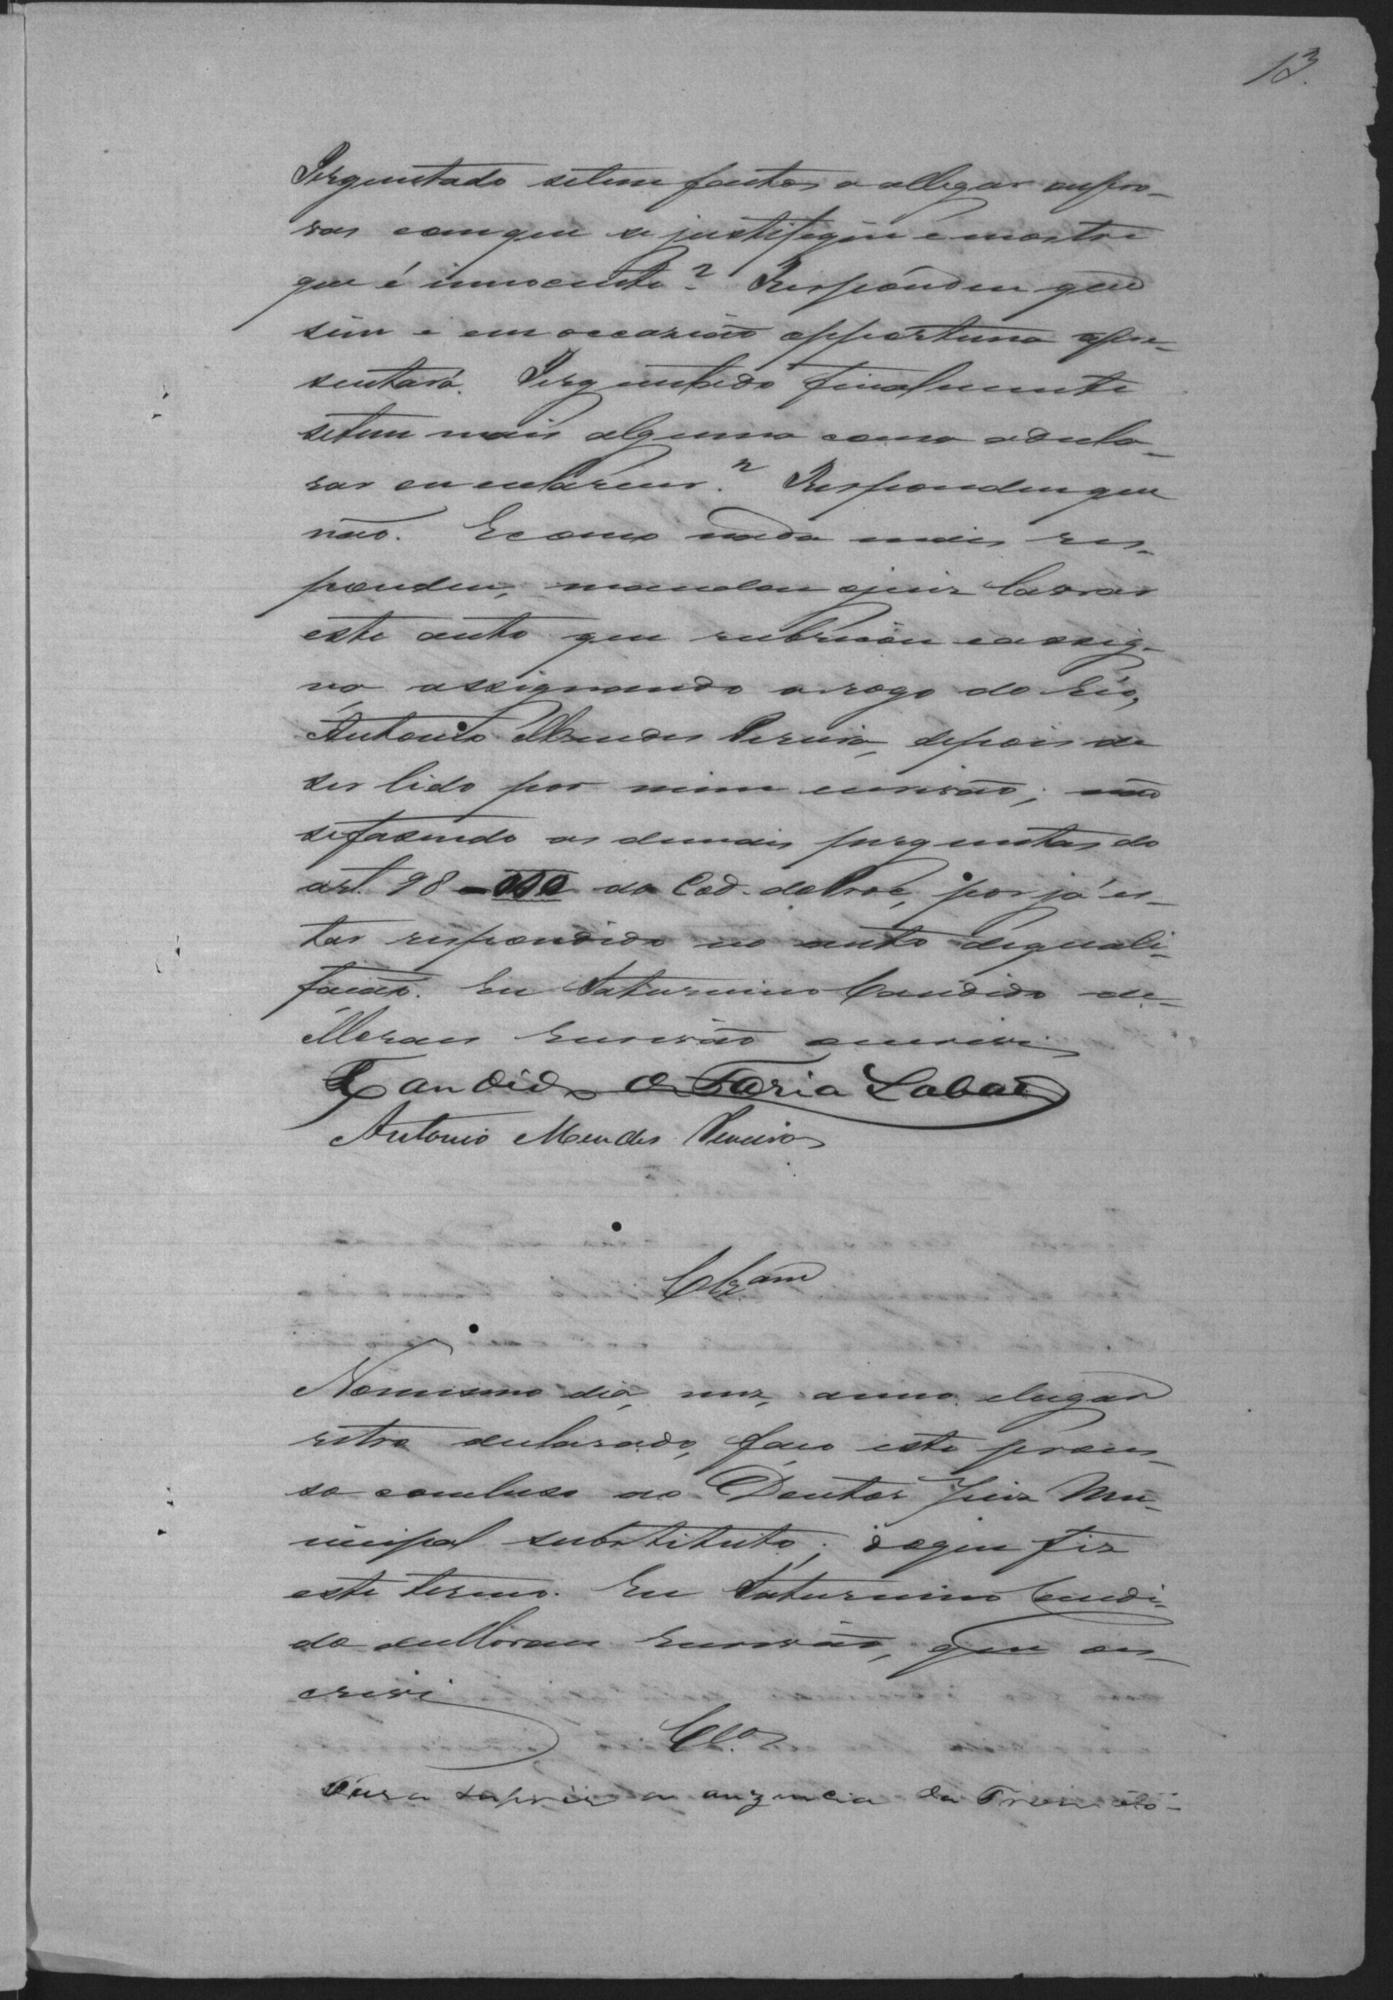 13.
Perguntado se tem factos a allegar ou pro-
vas com que se justifique e mostre
que é innocente? Respondeu que
sim e em occasião opportuna apre-
sentará. Perguntado finalmente
se tem mais alguma cousa a decla-
rar ou esclarecer? Respondeu que
não. E como nada mais res-
pondeu, mandou o juiz lavrar
este auto que rubricou e assig-
na, assignando a rogo do réo,
Antonio Mendes Pereira, depois de
ser lido por mim escrivão; não
se fasendo as demais perguntas do
art. 98 do Cod. do Proc, por já es-
tar respondido no auto de quali-
ficação. Eu Saturnino Candido de
Moraes Escrivão o escrivi
Candido de Faria Lobato
Antonio Mendes Pereira
Clzam
No mesmo dia, mez, anno e lugar
retro declarado, faço este proces-
so concluso ao Doutor Juiz Mu-
nicipal substituto; do que fiz
este termo. Eu Saturnino Candi-
do de Moraes Escrivão, que o es-
crivi
Clo.
Para suprir a auzencia do Promoto-